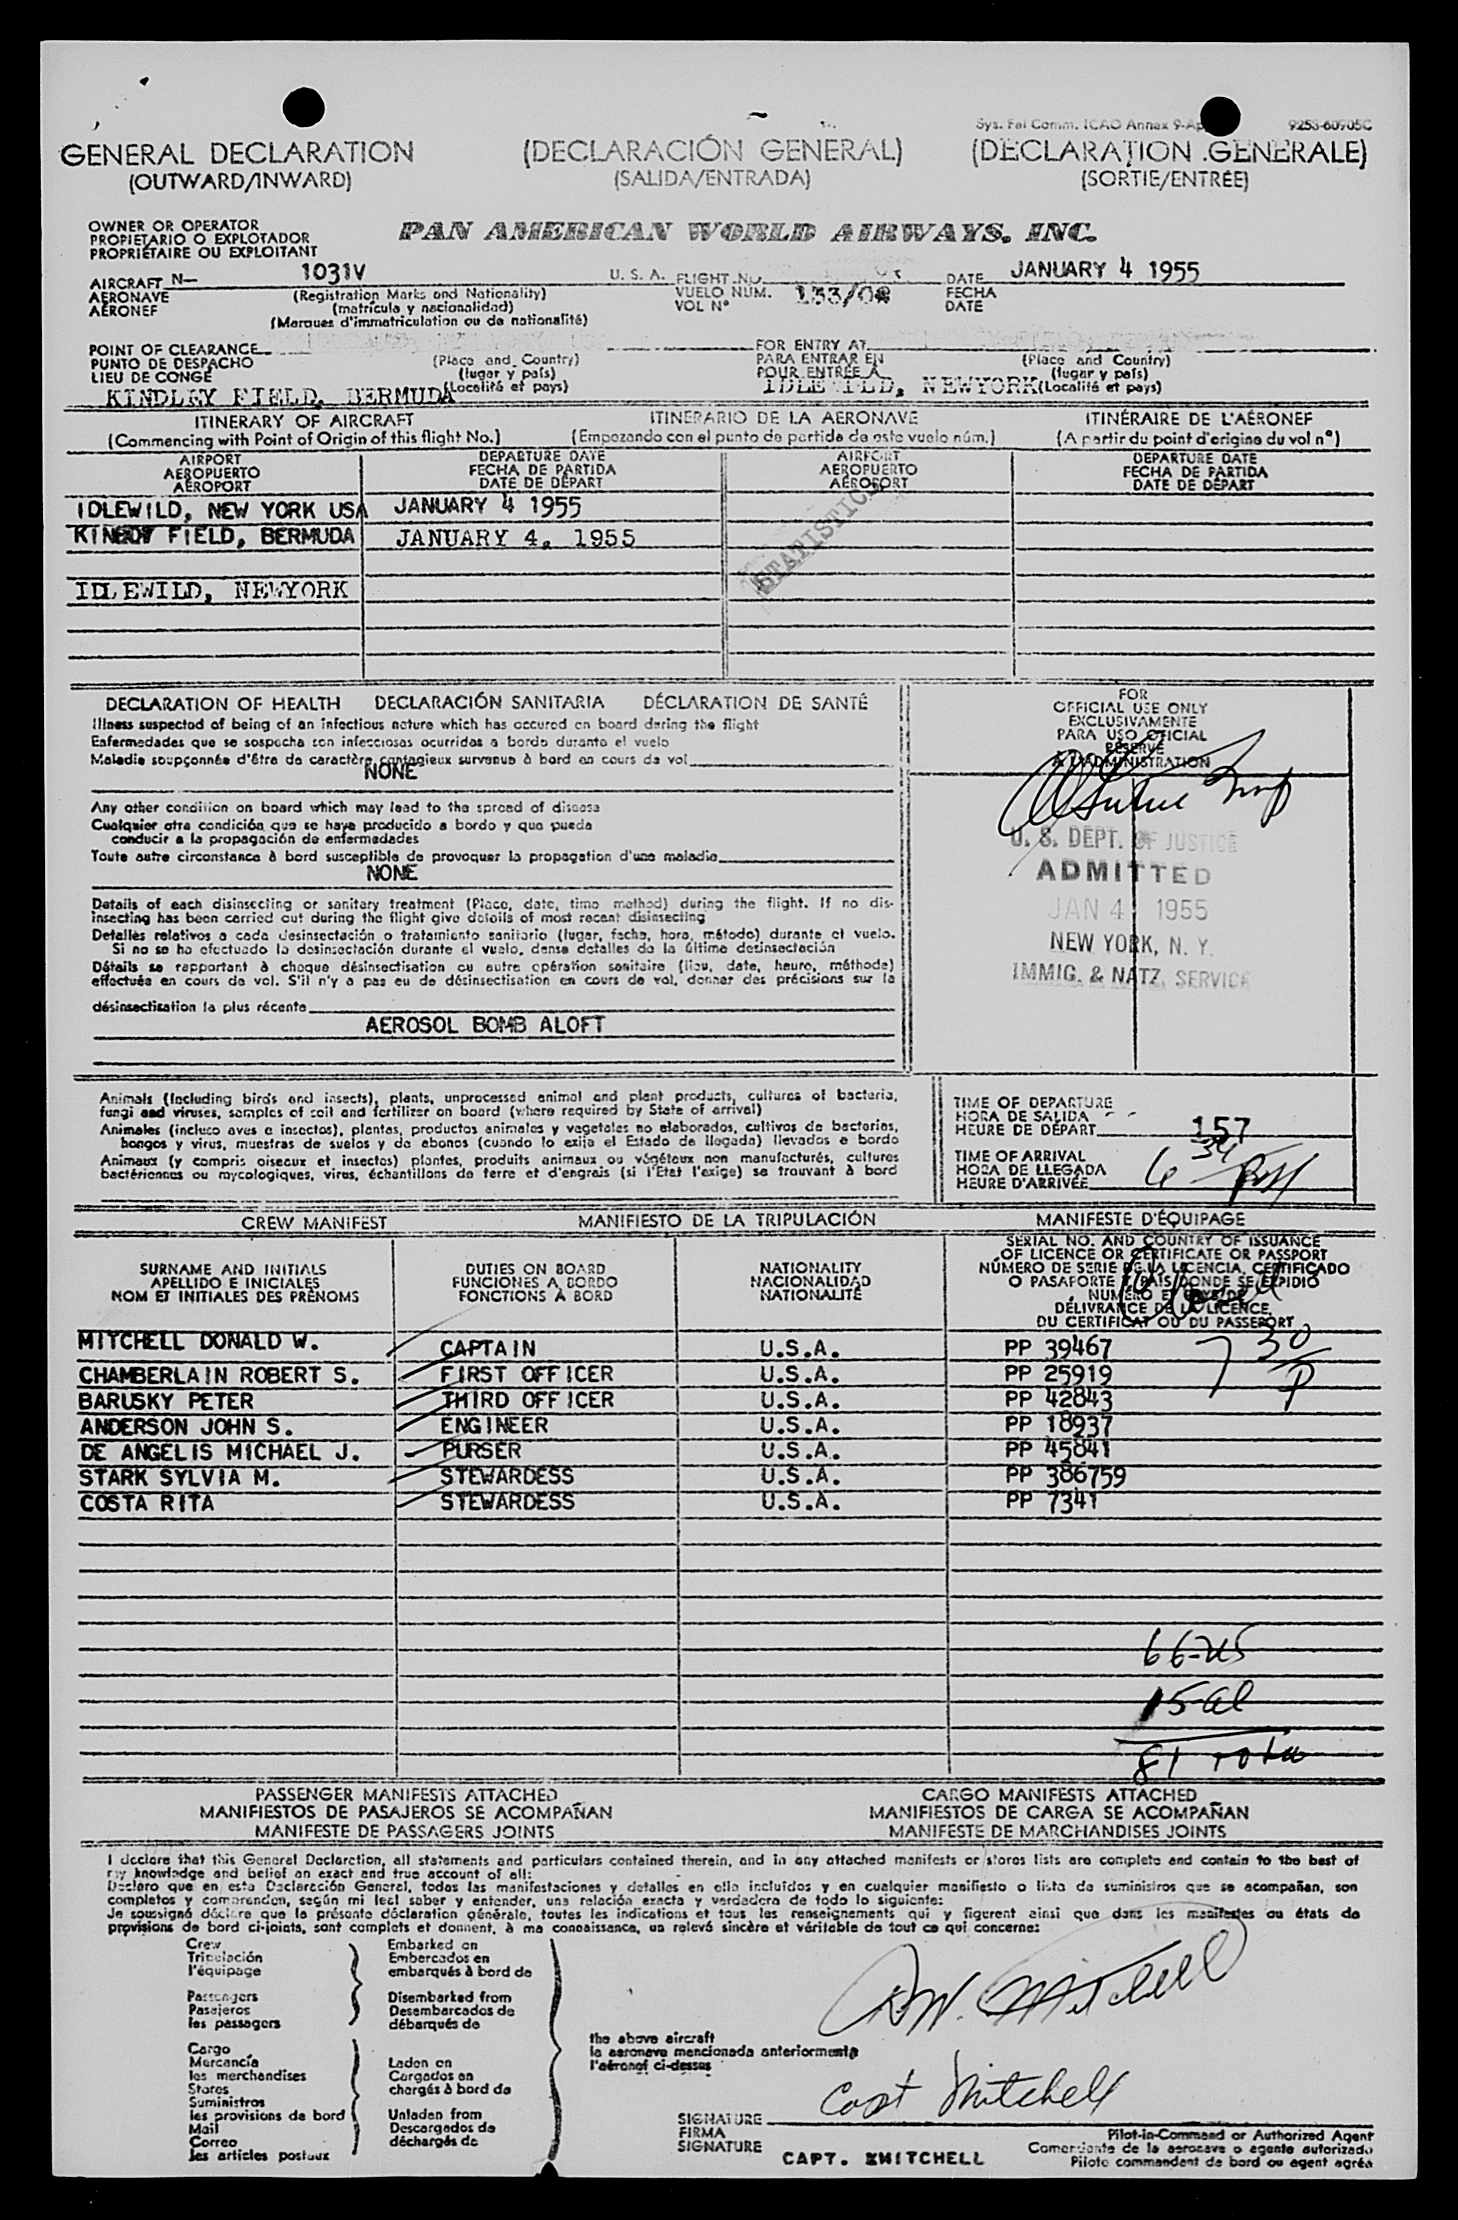 Sys. Fal Comm. ICAO Annex 9-Ap 9253-60705C
GENERAL DECLARATION (DECLARACIÓN GENERAL) (DECLARATION GENERALE)
(OUTWARD/INWARD) (SALIDA/ENTRADA) (SORTIE/ENTRÉE)
OWNER OR OPERATOR
PROPIETARIO O EXPLOTADOR
PROPRIÉTAIRE OU EXPLOITANT
PAN AMERICAN WORLD AIRWAYS, INC.
AIRCRAFT N— 1031V U. S. A. FLIGHT NO. DATE JANUARY 4 1955
AERONAVE (Registration Marks and Nationality) VUELO NUM. 153/04 FECHA
AÉRONEF (matrícula y nacionalidad) VOL N° DATE
(Marques d'immatriculation ou de nationalité)
POINT OF CLEARANCE FOR ENTRY AT
PUNTO DE DESPACHO (Place and Country) PARA ENTRAR EN (Place and Country)
LIEU DE CONGÉ (lugar y país) POUR ENTRÉE À (lugar y país)
KINDLEY FIELD, BERMUDA (Localité et pays) IDLEWILD, NEWYORK (Localité et pays)
ITINERARY OF AIRCRAFT ITINERARIO DE LA AERONAVE ITINÉRAIRE DE L'AÉRONEF
(Commencing with Point of Origin of this flight No.) (Empezando con el punto de partida de este vuelo núm.) (A partir du point d'origine du vol n°)
AIRPORT DEPARTURE DATE AIRPORT DEPARTURE DATE
AEROPUERTO FECHA DE PARTIDA AEROPUERTO FECHA DE PARTIDA
AÉROPORT DATE DE DÉPART AÉROPORT DATE DE DÉPART
IDLEWILD, NEW YORK USA JANUARY 4 1955
KINDLEY FIELD, BERMUDA JANUARY 4, 1955
STATISTICS
IDLEWILD, NEWYORK
DECLARATION OF HEALTH DECLARACIÓN SANITARIA DÉCLARATION DE SANTÉ
Illness suspected of being of an infectious nature which has occured on board during the flight
Enfermedades que se sospecha son infecciosas ocurridas a bordo durante el vuelo
Maladie soupçonnée d'être de caractère contagieux survenue à bord en cours de vol
NONE
Any other condition on board which may lead to the spread of disease
Cualquier otra condición que se haya producido a bordo y que pueda
conducir a la propagación de enfermedades
Toute autre circonstance à bord susceptible de provoquer la propagation d'une maladie
NONE
Details of each disinsecting or sanitary treatment (Place, date, time method) during the flight. If no dis-
insecting has been carried out during the flight give details of most recent disinsecting
Detalles relativos a cada desinsectación o tratamiento sanitario (lugar, fecha, hora, método) durante el vuelo.
Si no se ha efectuado la desinsectación durante el vuelo, dense detalles de la última desinsectación
Détails se rapportant à chaque désinsectisation ou autre opération sanitaire (lieu, date, heure, méthode)
effectuée en cours de vol. S'il n'y a pas eu de désinsectisation en cours de vol, donner des précisions sur la
désinsectisation la plus récente
AEROSOL BOMB ALOFT
FOR
OFFICIAL USE ONLY
EXCLUSIVAMENTE
PARA USO OFICIAL
RÉSERVÉ
A L'ADMINISTRATION
U. S. DEPT. OF JUSTICE
ADMITTED
JAN 4 1955
NEW YORK, N. Y.
IMMIG. & NATZ. SERVICE
Animals (including birds and insects), plants, unprocessed animal and plant products, cultures of bacteria,
fungi and viruses, samples of soil and fertilizer on board (where required by State of arrival)
Animales (incluso aves e insectos), plantas, productos animales y vegetales no elaborados, cultivos de bacterias,
hongos y virus, muestras de suelos y de abonos (cuando lo exija el Estado de llegada) llevados a bordo
Animaux (y compris oiseaux et insectes) plantes, produits animaux ou végétaux non manufacturés, cultures
bactériennes ou mycologiques, virus, échantillons de terre et d'engrais (si l'État l'exige) se trouvant à bord
TIME OF DEPARTURE
HORA DE SALIDA
HEURE DE DÉPART 157
TIME OF ARRIVAL
HORA DE LLEGADA 6 34
HEURE D'ARRIVÉE
CREW MANIFEST MANIFIESTO DE LA TRIPULACIÓN MANIFESTE D'ÉQUIPAGE
SURNAME AND INITIALS
APELLIDO E INICIALES
NOM ET INITIALES DES PRÉNOMS
DUTIES ON BOARD
FUNCIONES A BORDO
FONCTIONS À BORD
NATIONALITY
NACIONALIDAD
NATIONALITÉ
SERIAL NO. AND COUNTRY OF ISSUANCE
OF LICENCE OR CERTIFICATE OR PASSPORT
NÚMERO DE SERIE DE LA LICENCIA, CERTIFICADO
O PASAPORTE Y PAÍS DONDE SE EXPIDIÓ
NUMÉRO ET PAYS DE
DÉLIVRANCE DE LA LICENCE,
DU CERTIFICAT OU DU PASSEPORT
MITCHELL DONALD W. CAPTAIN U.S.A. PP 39467 7 30/P
CHAMBERLAIN ROBERT S. FIRST OFFICER U.S.A. PP 25919
BARUSKY PETER THIRD OFFICER U.S.A. PP 42843
ANDERSON JOHN S. ENGINEER U.S.A. PP 18937
DE ANGELIS MICHAEL J. PURSER U.S.A. PP 45841
STARK SYLVIA M. STEWARDESS U.S.A. PP 386759
COSTA RITA STEWARDESS U.S.A. PP 7341
66-US
15-al
81 total
PASSENGER MANIFESTS ATTACHED CARGO MANIFESTS ATTACHED
MANIFIESTOS DE PASAJEROS SE ACOMPAÑAN MANIFIESTOS DE CARGA SE ACOMPAÑAN
MANIFESTE DE PASSAGERS JOINTS MANIFESTE DE MARCHANDISES JOINTS
I declare that this General Declaration, all statements and particulars contained therein, and in any attached manifests or stores lists are complete and contain to the best of
my knowledge and belief an exact and true account of all:
Declaro que en esta Declaración General, todas las manifestaciones y detalles en ella incluídos y en cualquier manifiesto o lista de suministros que se acompañan, son
completos y comprenden, según mi leal saber y entender, una relación exacta y verdadera de todo lo siguiente:
Je soussigné déclare que la présente déclaration générale, toutes les indications et tous les renseignements qui y figurent ainsi que dans les manifestes ou états de
provisions de bord ci-joints, sont complets et donnent, à ma connaissance, un relevé sincère et véritable de tout ce qui concerne:
Crew
Tripulación
l'équipage
Passengers
Pasajeros
les passagers
Cargo
Mercancía
les merchandises
Stores
Suministros
les provisions de bord
Mail
Correo
les articles postaux
Embarked on
Embarcados en
embarqués à bord de
Disembarked from
Desembarcados de
débarqués de
Laden on
Cargados en
chargés à bord de
Unladen from
Descargados de
déchargés de
the above aircraft
la aeronave mencionada anteriormente
l'aéronef ci-dessus
D.W. Mitchell
Capt Mitchell
SIGNATURE
FIRMA
SIGNATURE
CAPT. XMITCHELL
Pilot-in-Command or Authorized Agent
Comandante de la aeronave o agente autorizado
Pilote commandant de bord ou agent agréé